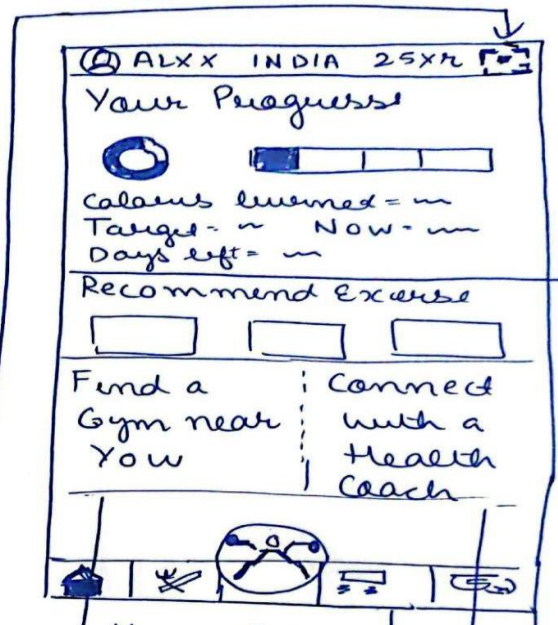 ALXX INDIA 25Yr
Your Progress
Calories burned =
Target - Now -
Days left =
Recommend Excerse
Find a
Gym near
You
Connect
with a
Health
Coach